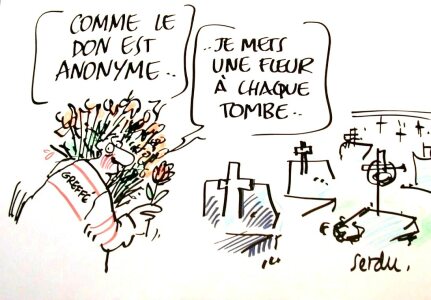 COMME LE
DON EST
ANONYME..
..JE METS
UNE FLEUR
À CHAQUE
TOMBE..
GREFFÉ
serdu.